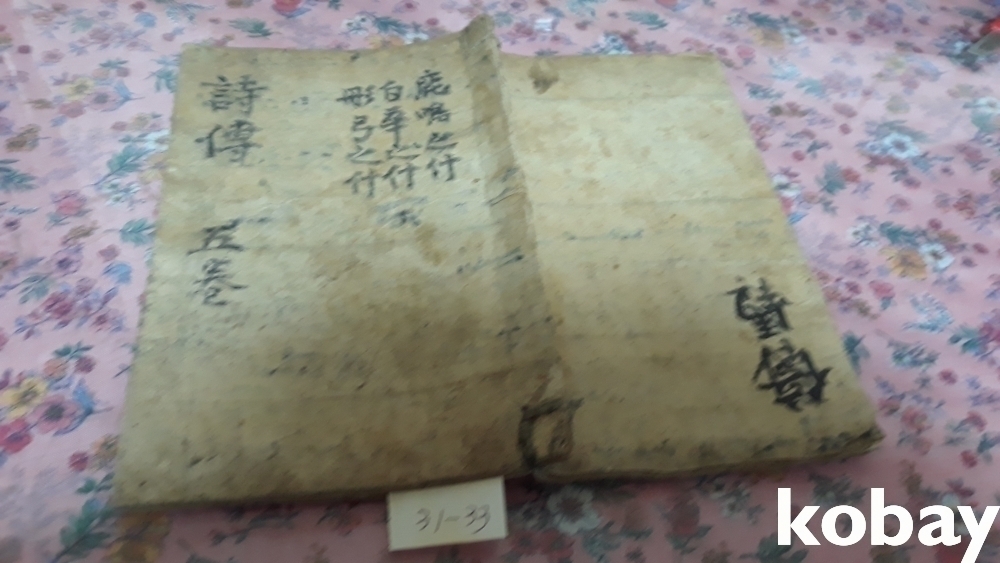 詩傳 五卷
鹿鳴之什
白華之什
彤弓之什
31-33
kobay